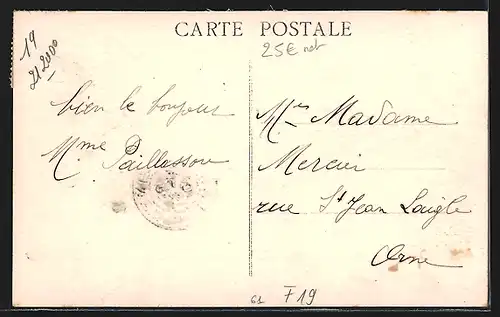 CARTE POSTALE
25€ net
19
212000
bien le bonjour
Mme Paillasson
Mes Madame
Mercier
rue St Jean Laigle
Orne
61 F19